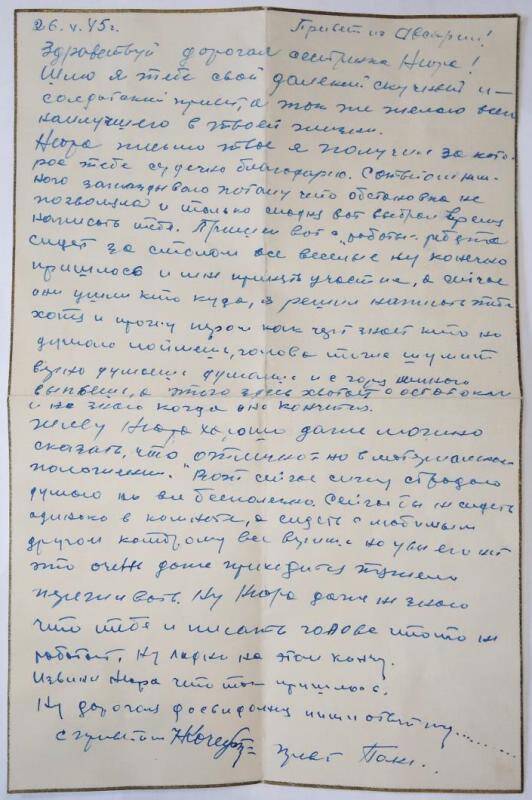 26.V.45г. Привет из Австрии!
Здравствуй дорогая сестричка Нюра!
Шлю я тебе свой далекий скучный и
солдатский привет, а так же желаю всего
наилучшего в твоей жизни.
Нюра письмо твое я получил за кото-
рое тебе сердечно благодарю. С ответом
запаздывало потому что обстановка не
позволяла и только сегодня вот выбрал время
написать тебе. Пришли вот с "работы" ребята
сидят за столом все веселые ну конечно
пришлось и мне принять участие, а сейчас
они ушли кто куда, я решил написать тебе
хотя и прожу пером как чорт знает кто но
думаю поймешь, голова тоже шумит
думаешь и с горя много
выпьешь, а этого здесь хватает
и не знаю когда оно кончится.
Живу Нюра хорошо даже можно
сказать, что отлично но в материальном
положении. Вот сейчас сижу страдаю
думаю но все бесполезно. Сейчас бы не сидеть
одиноко в комнате, а сидеть с любимым
другом которому но увы его нет
это очень даже приходится тяжело
переживать. Ну Нюра даже не знаю
что тебе и писать голова что-то не
работает. Ну ладно на этом кончу.
Извини Нюра что так пришлось.
Ну дорогая досвидания пиши ответ жду.........
с приветом